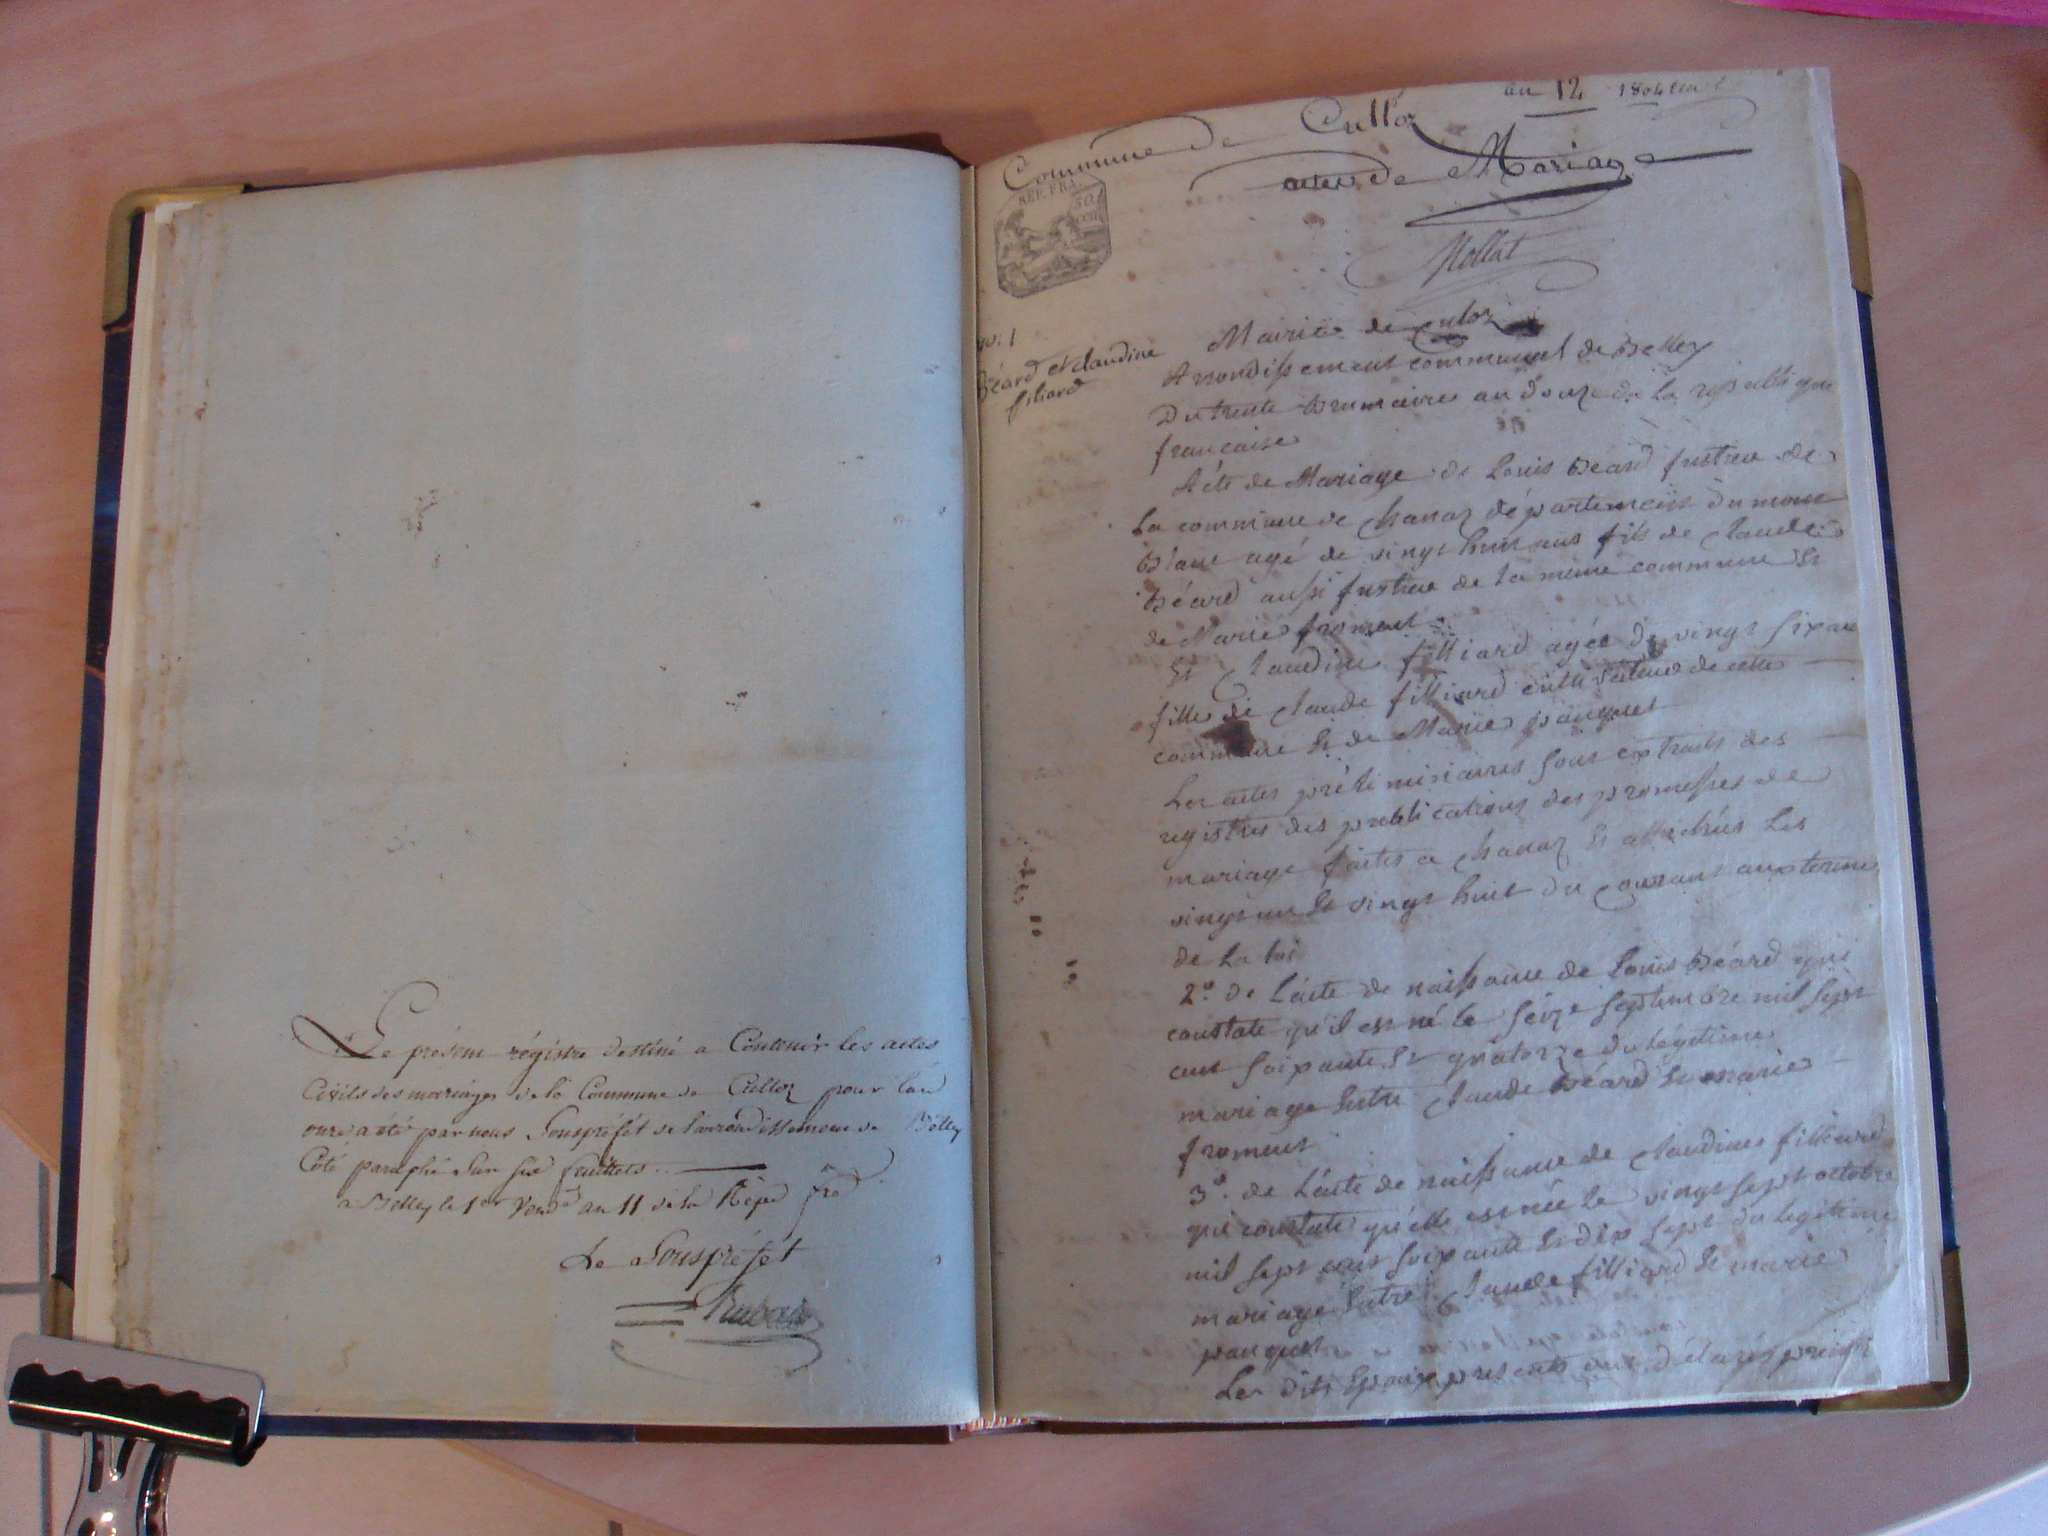 Le présent régistre destiné a Contenir les actes
Civils des mariages de la Commune de Culloz pour l'an
onze a été par nous Souspréfét de l'arrondissement de Bélley
Côté paraphé Sur six feuillets
a Belley le 1er Vendre an 11 de la Répe fre
Le Souspréfét
an 12 1804
Commune de Culloz
actes de Mariage
REP. FRA.
50
cen
Mollat
no. 1
Béard et Claudine
filiard
Mairie de Culoz
Arrondissement communal de Belley
Du trente brumaire an douze de la république
francaise
Acte de Mariage de Louis Béard fustier de
La commune de Chanaz département du mont
blanc agé de vingt huit ans fils de Claude
Béard aussi fustier de la même commune Et
de Marie froment
Et Claudine filliard agée de vingt six ans
fille de Claude filliard cultivateur de cette
commune Et de Marie pauquet
Les actes préliminaires sont extraits des
registres des publications des promesses de
mariage faites a Chanaz Et affichées les
vingt un Et vingt huit du courant aux termes
de La loi
2o. de L'acte de naissance de Louis Béard qui
constate qu'il est né le seize septembre mil sept
cent soixante Et quatorze du légitime
mariage Entre Claude Béard Et marie
froment
3o. de L'acte de naissance de Claudine filliard
qui constate qu'elle est née le vingt sept octobre
mil sept cent soixante Et dix sept du legitime
mariage Entre Claude filliard Et marie
pauquet
Les dits Epoux presents ont déclaré prendre